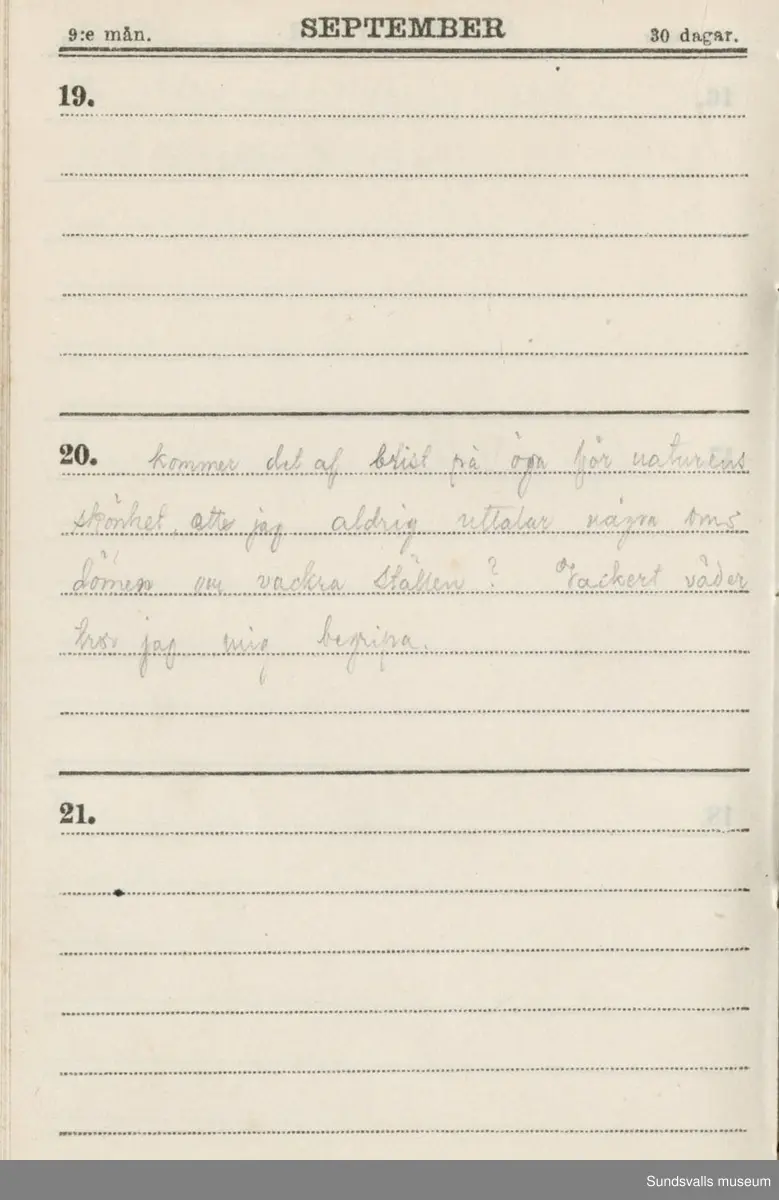 9:e mån. SEPTEMBER 30 dagar.
19.
20. kommer det af brist på öga för naturens
skönhet, att jag aldrig uttalar några om-
dömen om vackra ställen? Vackert väder
tror jag mig begripa.
21.
Sundsvalls museum